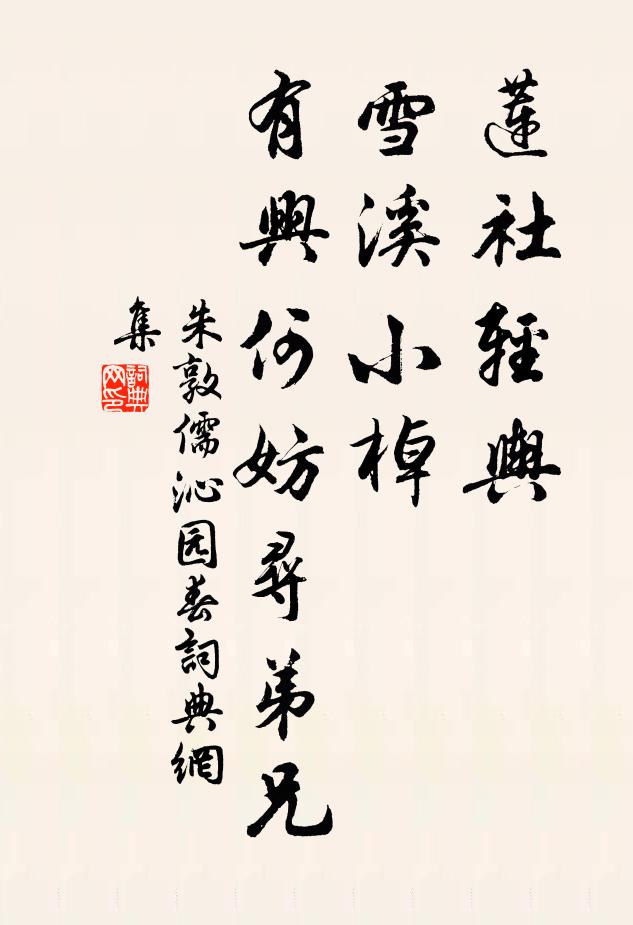 蓮社輕輿
雪溪小棹
有興何妨尋弟兄
朱敦儒沁园春詞典網
集
詞典
网印